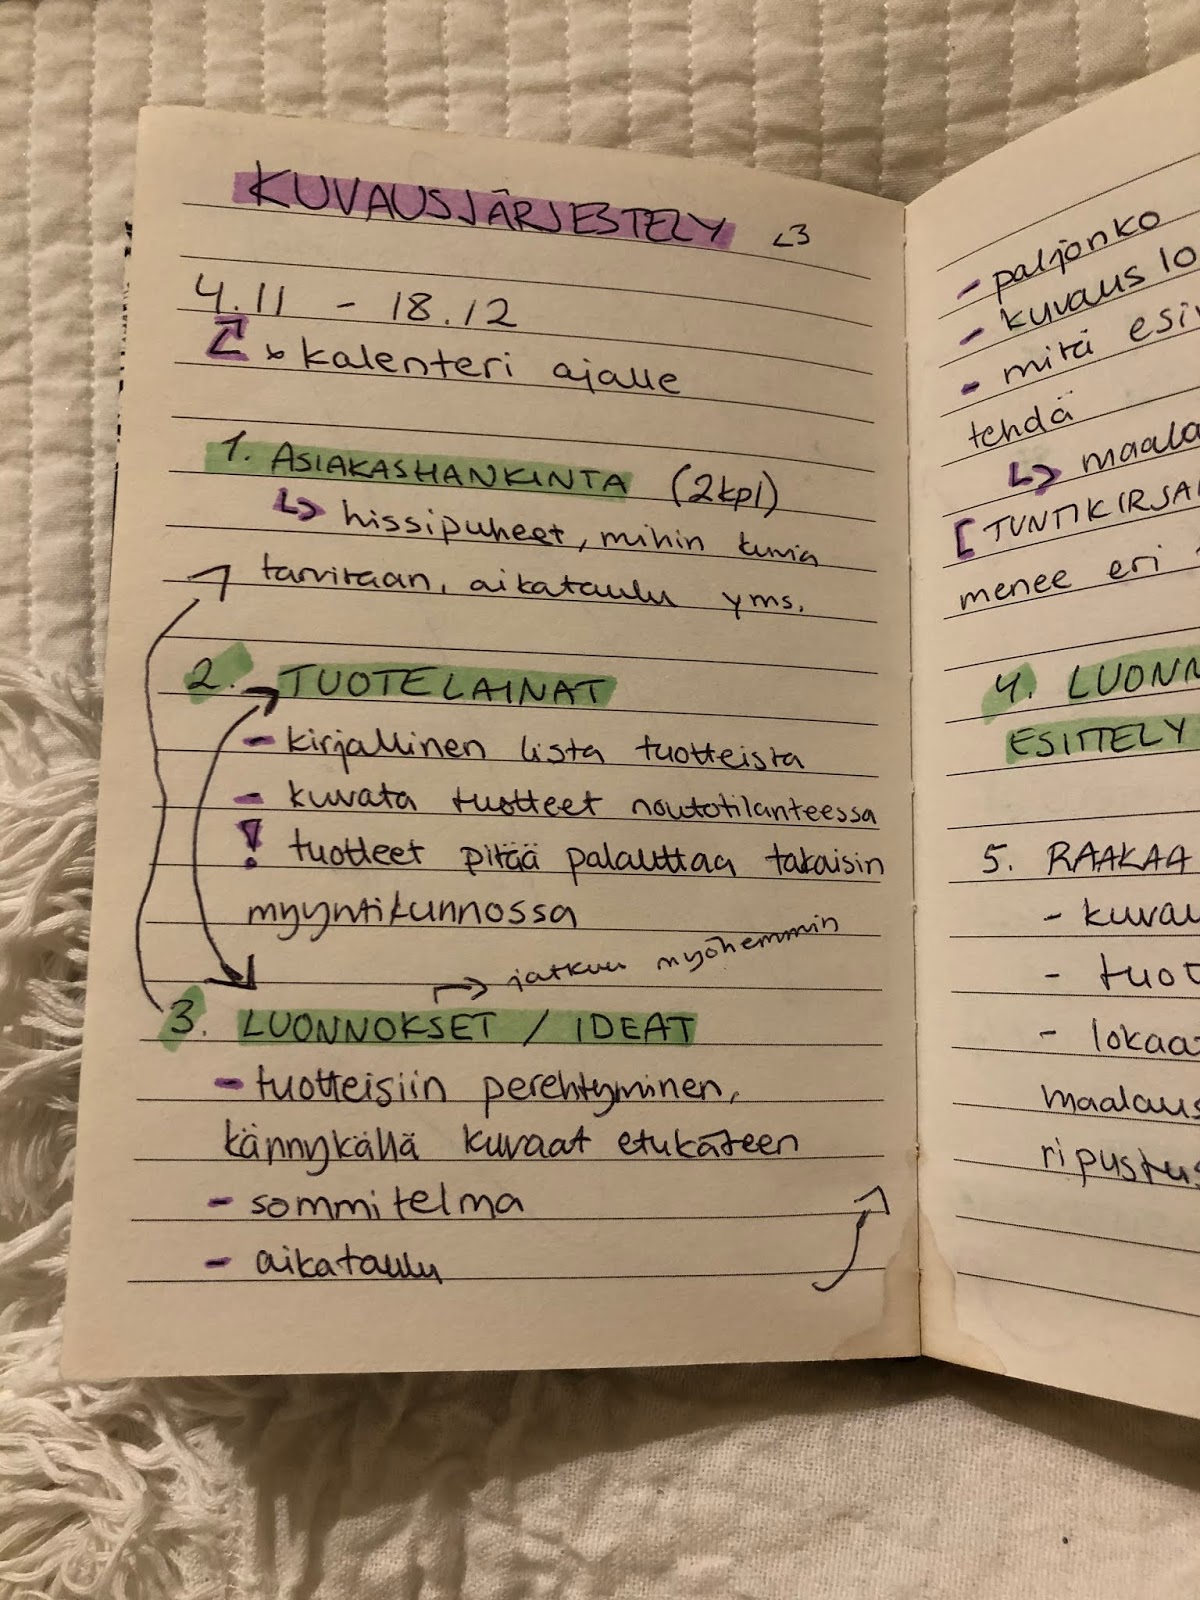 KUVAUSJÄRJESTELY <3
4.11 - 18.12
kalenteri ajalle
1. ASIAKASHANKINTA (2kpl)
hissipuheet, mihin kuvia
tarvitaan, aikataulu yms.
2. TUOTELAINAT
- kirjallinen lista tuotteista
- kuvata tuotteet noutotilanteessa
! tuotteet pitää palauttaa takaisin
myyntikunnossa
jatkuu myöhemmin
3. LUONNOKSET / IDEAT
- tuotteisiin perehtyminen,
kännykällä kuvaat etukäteen
- sommitelma
- aikataulu
- paljonko
- kuvaus lo
- mitä esi
tehdä
maala
[TUNTIKIRJA
menee eri
4. LUONN
ESITTELY
5. RAAKAA
- kuvau
- tuot
- lokaa
maalaus
ripustus